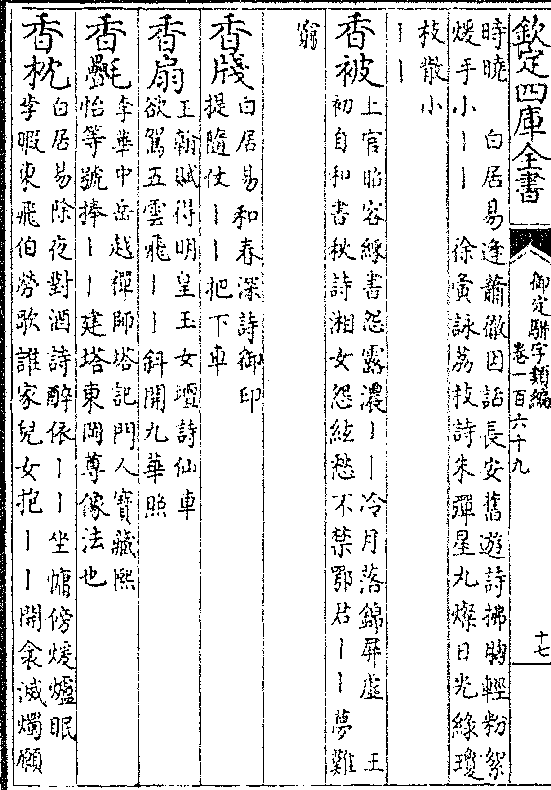 欽定四庫全書
御定駢字類編
卷一百六十九
十七
時曉　白居易逢蕭徹因話長安舊遊詩拂胸輕粉絮
煖手小丨丨　徐夤詠荔枝詩朱彈星丸燦日光綠瓊
枝散小
丨丨
香被
上官昭容綵書怨露濃丨丨冷月落錦屏虛　王
初自和書秋詩湘女怨絃愁不禁鄂君丨丨夢難
窮
香牋
白居易和春深詩御印
提隨仗丨丨把下車
香扇
王翰賦得明皇玉女壇詩仙車
欲駕五雲飛丨丨斜開九華照
香㲲
李華中岳越禪師塔記門人寶藏熙
怡等號捧丨丨建塔東岡尊像法也
香枕
白居易除夜對酒詩醉依丨丨坐慵傍煖爐眠
李暇東飛伯勞歌誰家兒女抱丨丨開衾滅燭願